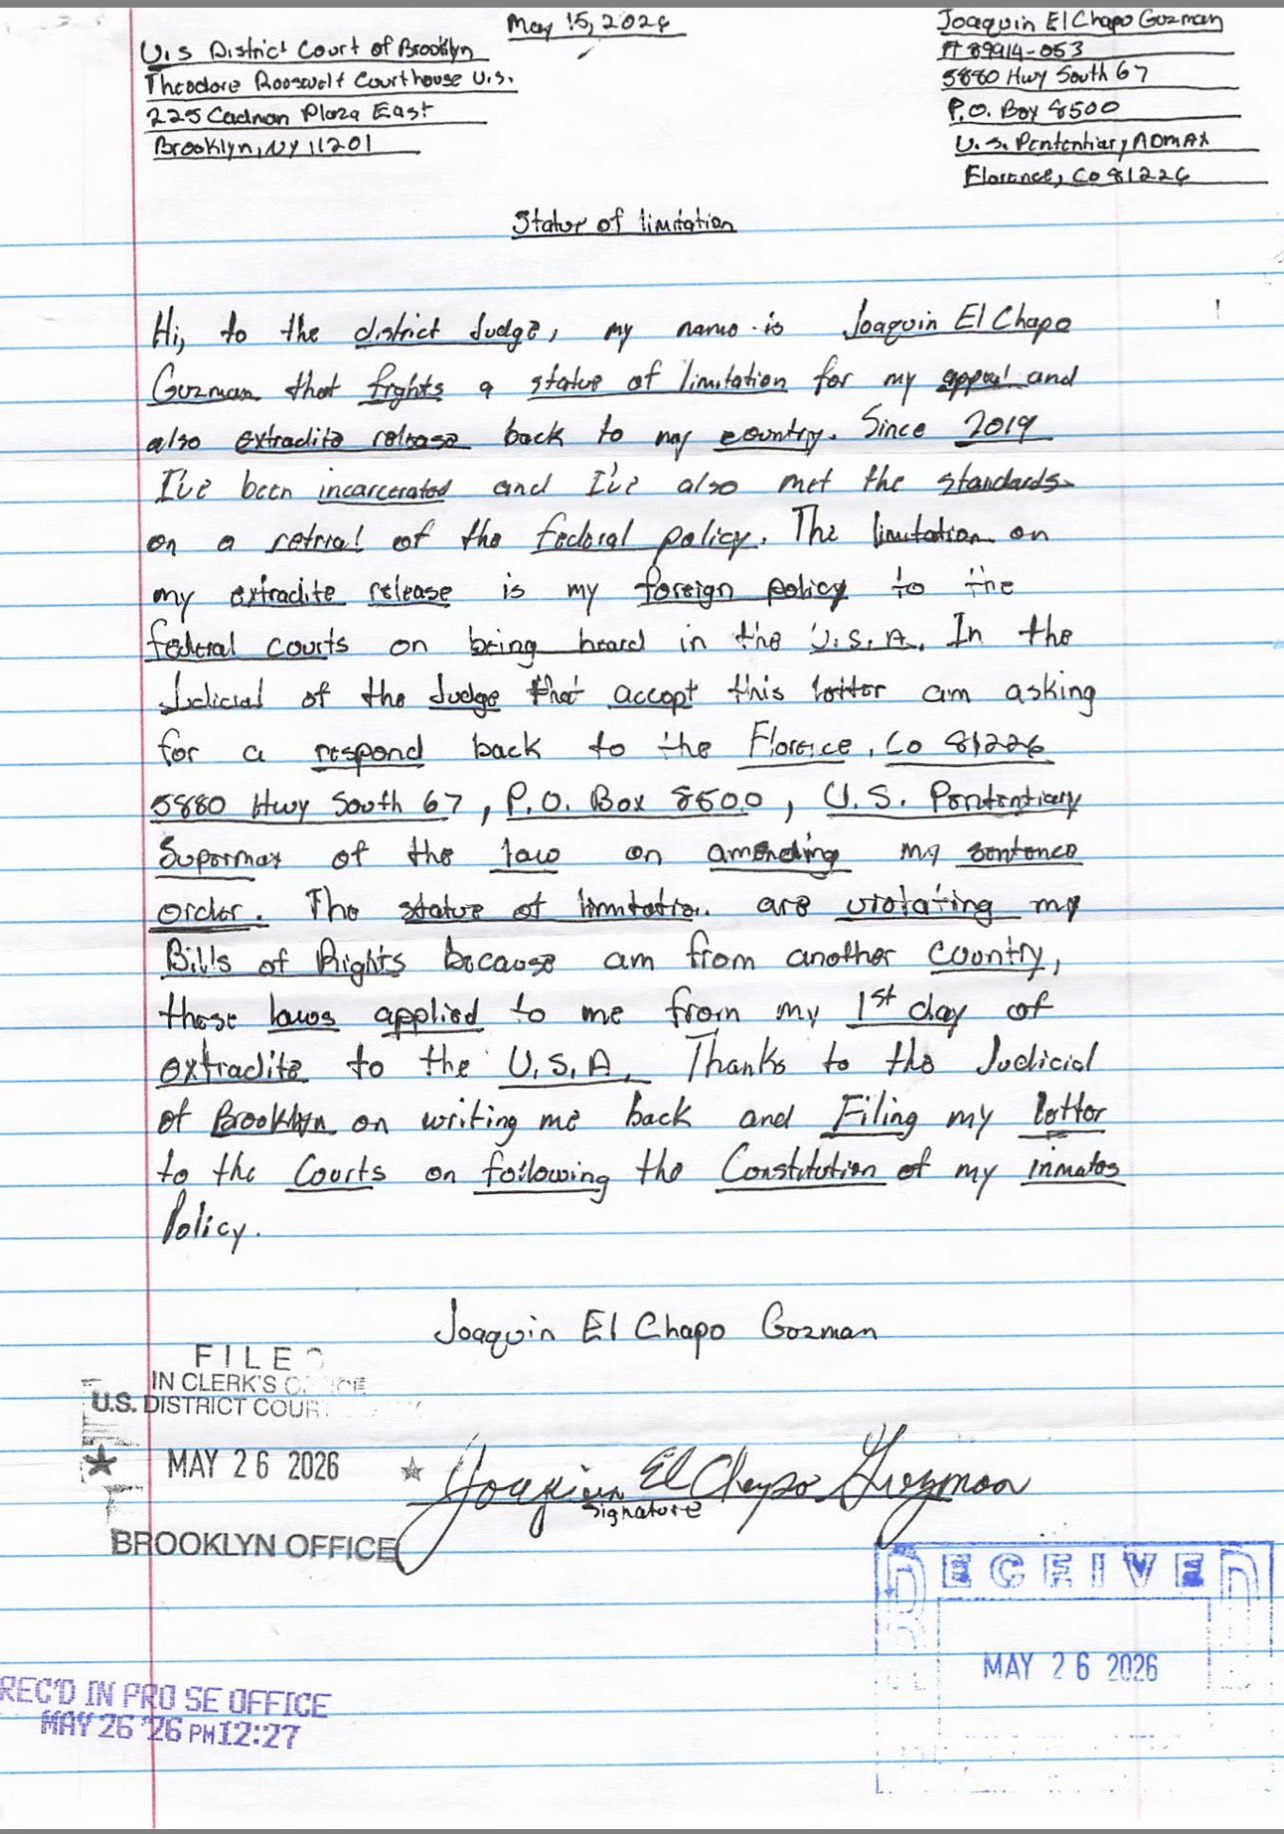 May 15, 2026
U.s District Court of Brooklyn
Theodore Roosevelt Courthouse U.S.
225 Cadman Plaza East
Brooklyn, NY 11201
Joaquin El Chapo Guzman
# 89914-053
5880 Hwy South 67
P.O. Box 8500
U.S. Pententiary ADMAX
Florence, Co 81226
Statue of limitation
Hi, to the district Judge, my name is Joaquin El Chapo
Guzman that fights a statue of limitation for my appeal and
also extradite release back to my country. Since 2019
I've been incarcerated and I've also met the standards
on a retrial of the federal policy. The limitation on
my extradite release is my foreign policy to the
federal courts on being heard in the U.S.A. In the
Judicial of the Judge that accept this letter am asking
for a respond back to the Florence, Co 81226
5880 Hwy South 67, P.O. Box 8500, U.S. Pententiary
Supermax of the law on amending my sentence
order. The statue of limitation are violating my
Bills of Rights because am from another country,
those laws applied to me from my 1st day of
extradite to the U.S.A. Thanks to the Judicial
of Brooklyn on writing me back and Filing my letter
to the Courts on following the Constitution of my inmates
Policy.
Joaquin El Chapo Guzman
FILED
IN CLERK'S OFFICE
U.S. DISTRICT COURT
★ MAY 26 2026 ★
BROOKLYN OFFICE
Joaquin El Chapo Guzman
Signature
RECEIVED
MAY 26 2026
REC'D IN PRO SE OFFICE
MAY 26 '26 PM12:27